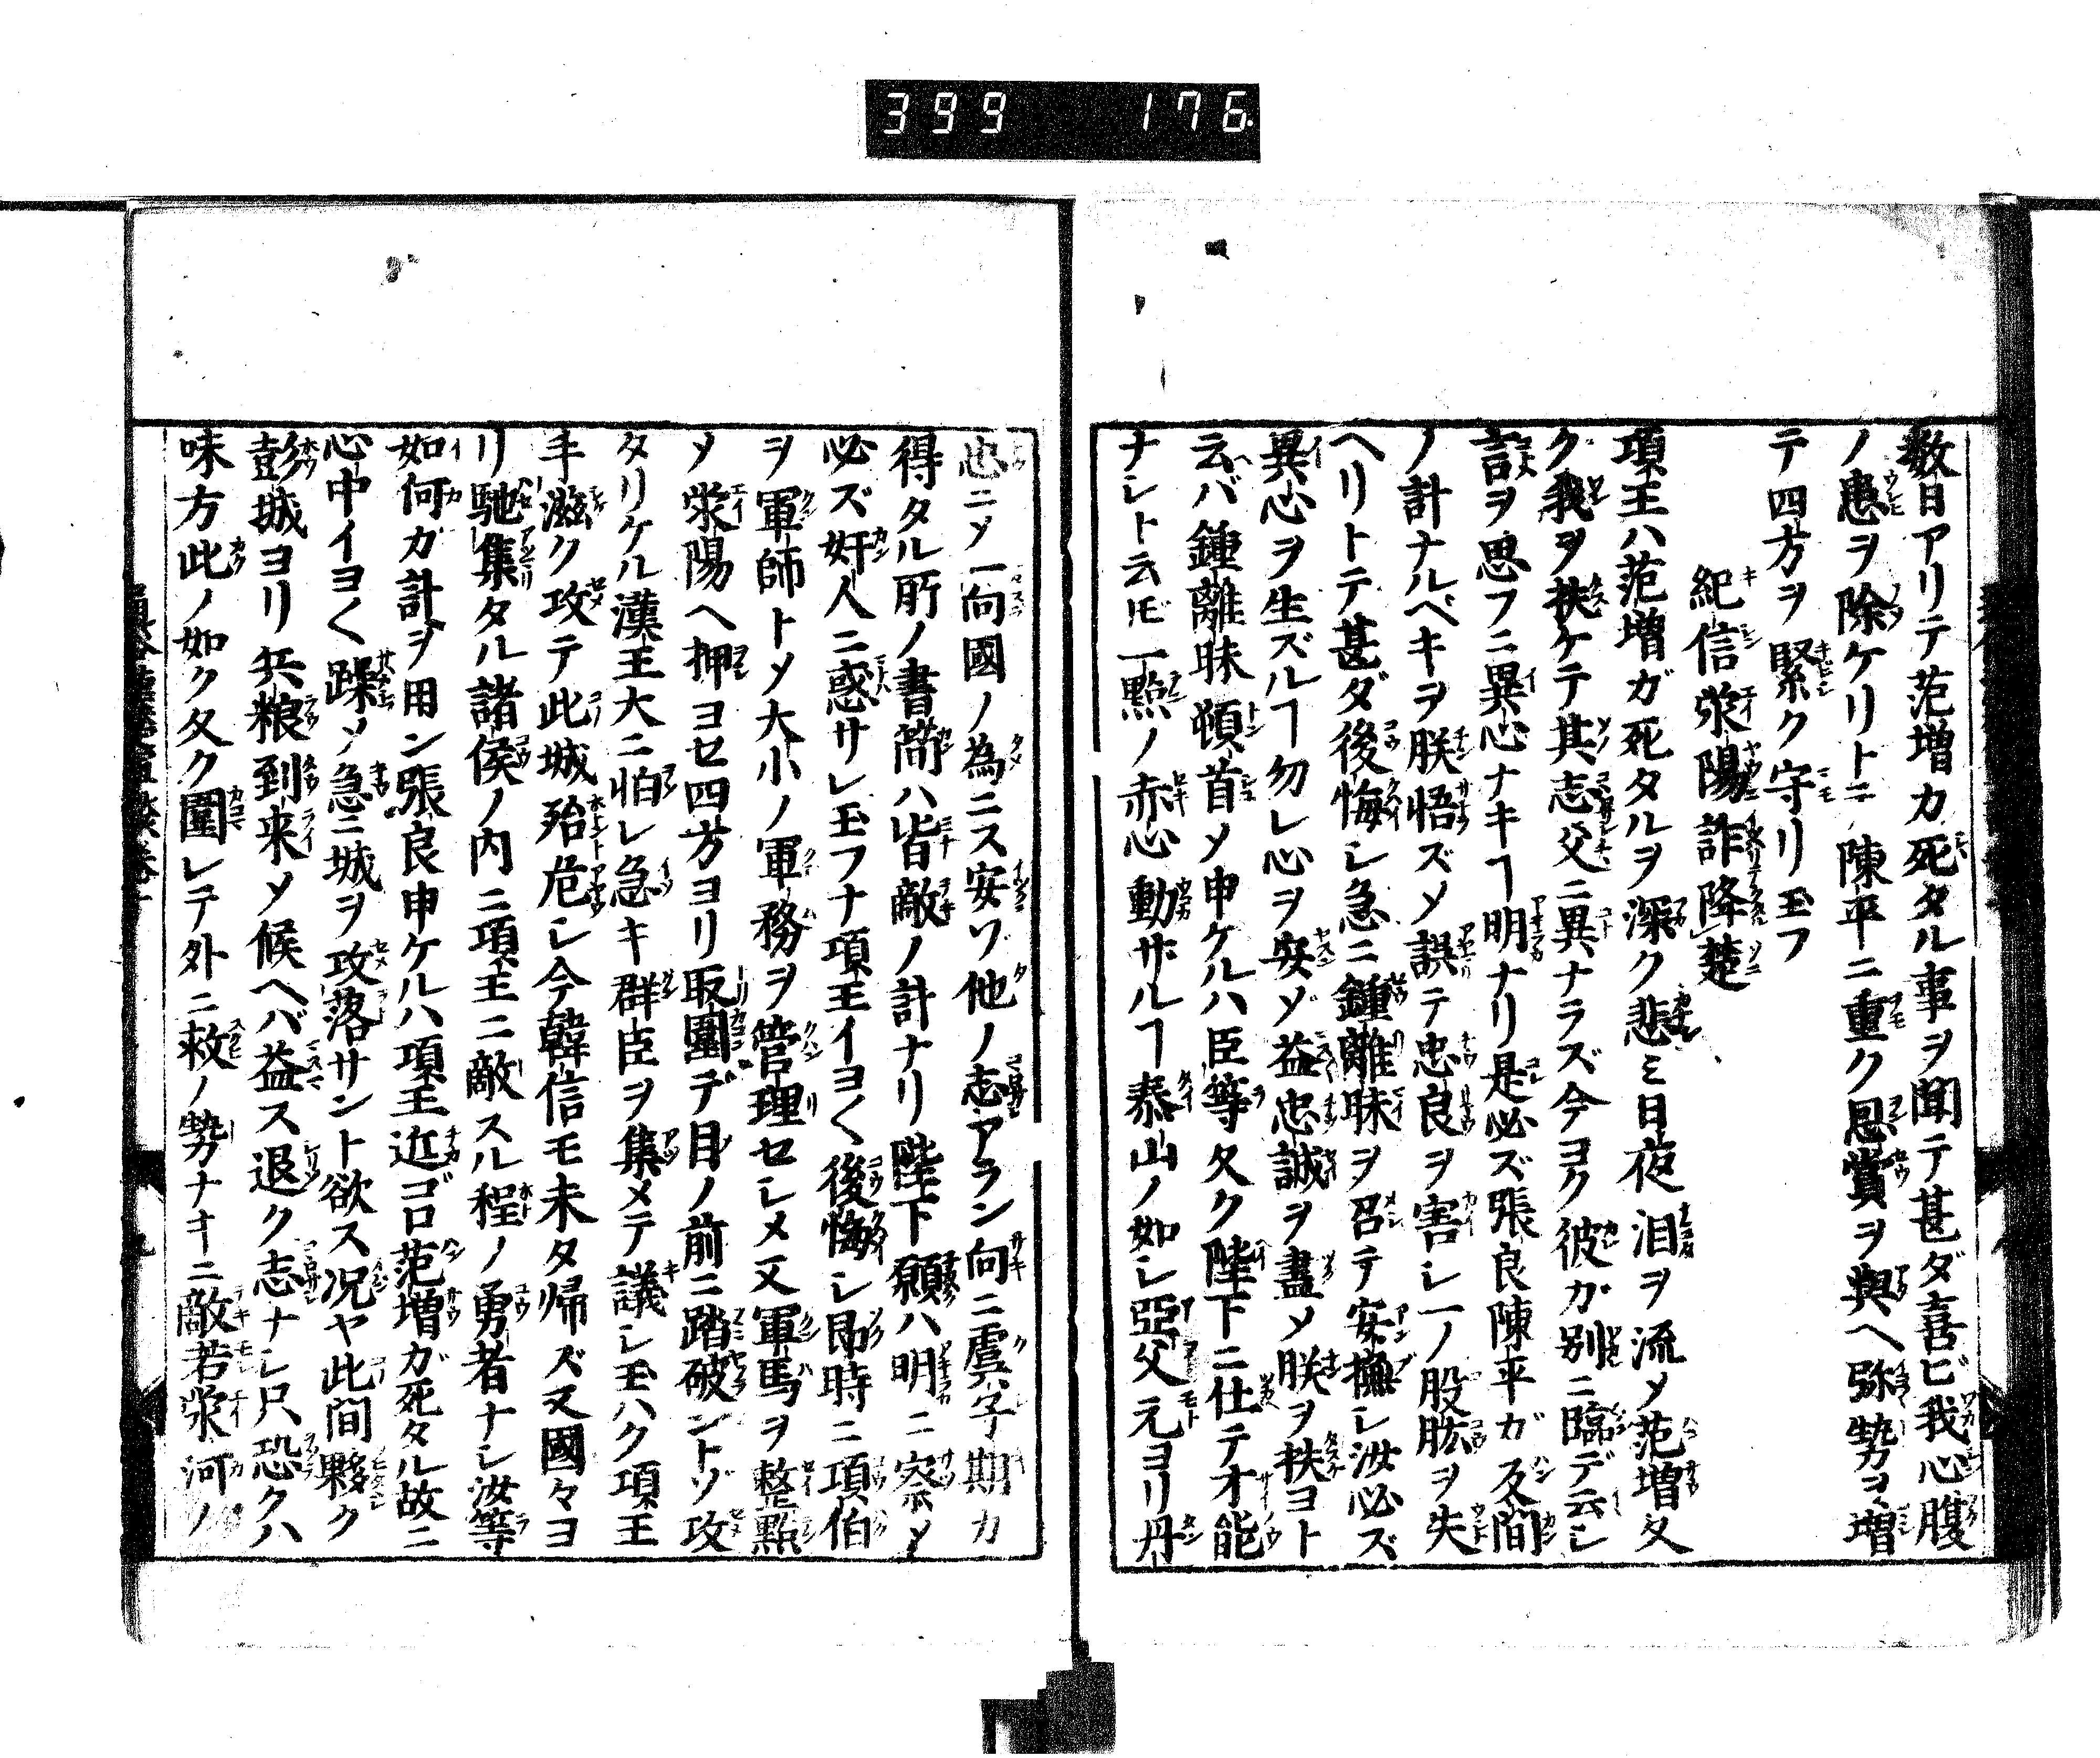 399 176.
数日アリテ范増カ死タル事ヲ聞テ甚ダ喜ビ我心腹
ノ患ヲ除ケリトテ陳平ニ重ク恩賞ヲ與ヘ弥勢ヲ増
テ四方ヲ緊ク守リ玉フ
紀信滎陽詐降楚
項王ハ范増ガ死タルヲ深ク悲ミ日夜泪ヲ流メ范増久
ク我ヲ扶ケテ其志父ニ異ナラズ今ヨク彼ガ別ニ臨デ云シ
言ヲ思フニ異心ナキヿ明ナリ是必ズ張良陳平ガ反間
ノ計ナルベキヲ朕悟ズメ誤テ忠良ヲ害シ一ノ股肱ヲ失
ヘリトテ甚ダ後悔シ急ニ鍾離昧ヲ召テ安撫シ汝必ズ
異心ヲ生ズルヿ勿レ心ヲ安ゾ益忠誠ヲ盡メ朕ヲ扶ヨト
云バ鍾離昧頓首メ申ケルハ臣等久ク陛下ニ仕テ才能
ナシト云𪜈一點ノ赤心動サルヿ泰山ノ如シ亞父元ヨリ丹
忠ニメ一向國ノ為ニス安ソ他ノ志アラン向ニ虞子期カ
得タル所ノ書簡ハ皆敵ノ計ナリ陛下願ハ明ニ察メ
必ズ奸人ニ惑サレ玉フナ項王イヨく後悔シ即時ニ項伯
ヲ軍師トメ大小ノ軍務ヲ管理セシメ又軍馬ヲ整點
メ滎陽ヘ押ヨセ四方ヨリ取圍デ目ノ前ニ踏破ントゾ攻
タリケル漢王大ニ怕レ急キ群臣ヲ集メテ議シ玉ハク項王
手滋ク攻テ此城殆危シ今韓信モ未タ帰ズ又國々ヨ
リ馳集タル諸侯ノ内ニ項王ニ敵スル程ノ勇者ナシ汝等
如何ガ計ヲ用ン張良申ケルハ項王近ゴロ范増ガ死タル故ニ
心中イヨく躁メ急ニ城ヲ攻落サント欲ス况ヤ此間夥ク
彭城ヨリ兵粮到来メ候ヘバ益ス退ク志ナシ只恐クハ
味方此ノ如ク久ク圍レテ外ニ救ノ勢ナキニ敵若滎河ノ